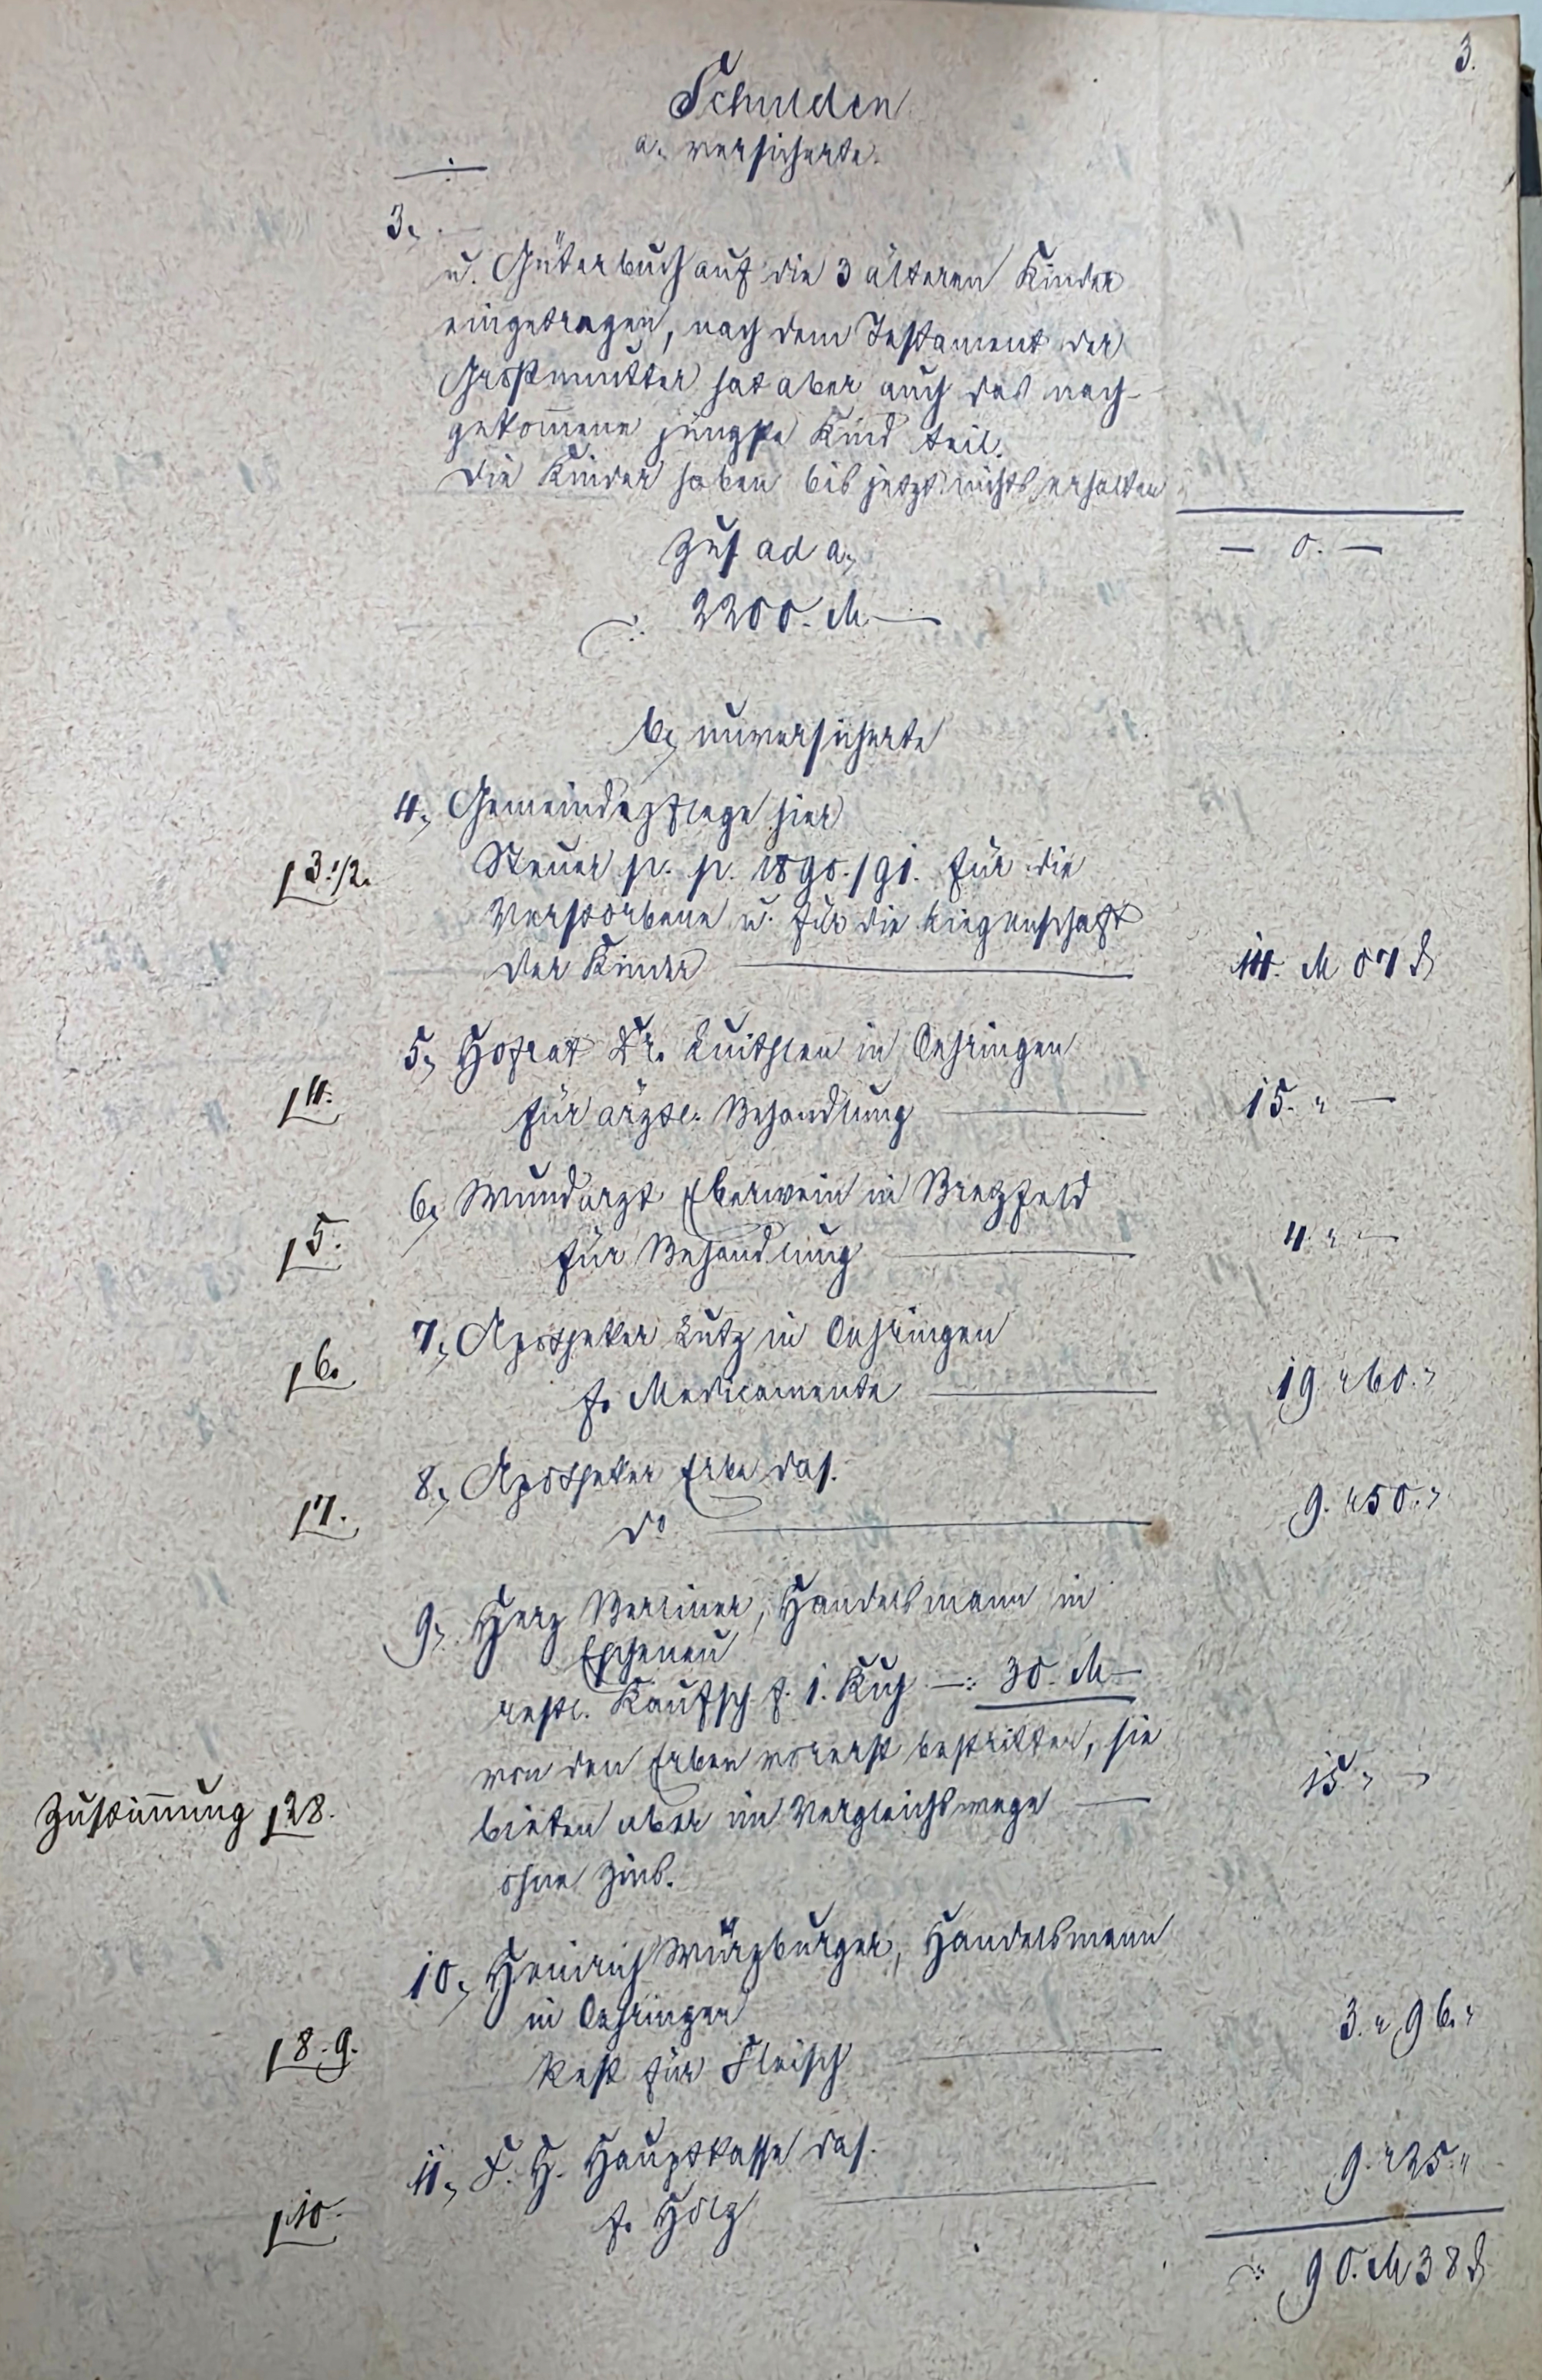 3.
Schulden
a. versicherte.
3.,
u. Güterbuch auf die 3 älteren Kinder
eingetragen, nach dem Testament der
Großmutter hat aber auch das nach-
gekom̄ene jüngste Kind teil.
Die Kinder haben bis jetzt nichts erhalten
— 0. —
Zus. ad a.,
2200. M. —
b., unversicherte
4., Gemeindepflege hier
[3.1/2. Steuer p. p. 1890./91. für die
Verstorbene u. für die Liegenschaft
der Kinder — 14. M 07 ₰
5., Hofrat Dr. Luithlen in Oehringen
[4. für ärztl. Behandlung — 15. " —
6., Wundarzt Eberwein in Bretzfeld
[5. für Behandlung — 4. " —
7., Apotheker Lutz in Oehringen
[6. f. Medicamente — 19 " 60. "
8., Apotheker Erbe das.
[7. do — 9. " 50. "
9., Herz Berliner, Handelsmann in
Eschenau
restl. Kaufsch. f. 1. Kuh —: 30. M —
von den Erben vorerst bestritten, sie
Zustim̄ung [28. bieten aber im Vergleichswege — 15. " —
ohne Zins.
10., Heinrich Würzburger, Handelsmann
in Oehringen
[8.9. Rest für Fleisch — 3. " 96. "
11., F. H. Hauptkasse das.
[10. f. Holz — 9. " 25. "
90. M 38 ₰